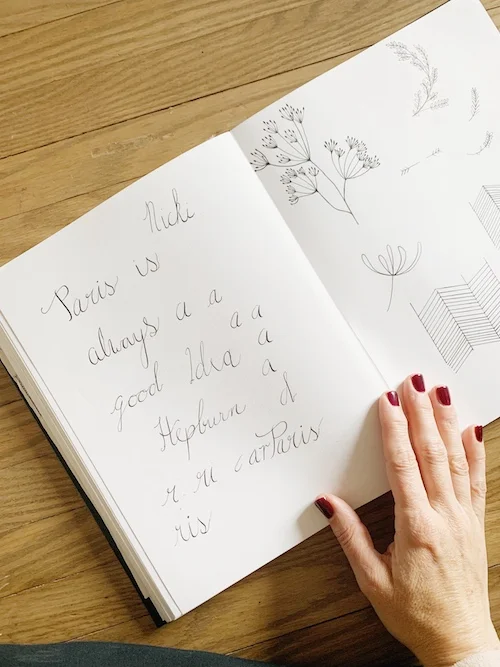 Nicki
Paris is
always a a
a a
good Idea a
a
Hepburn d
r ru c arParis
ris